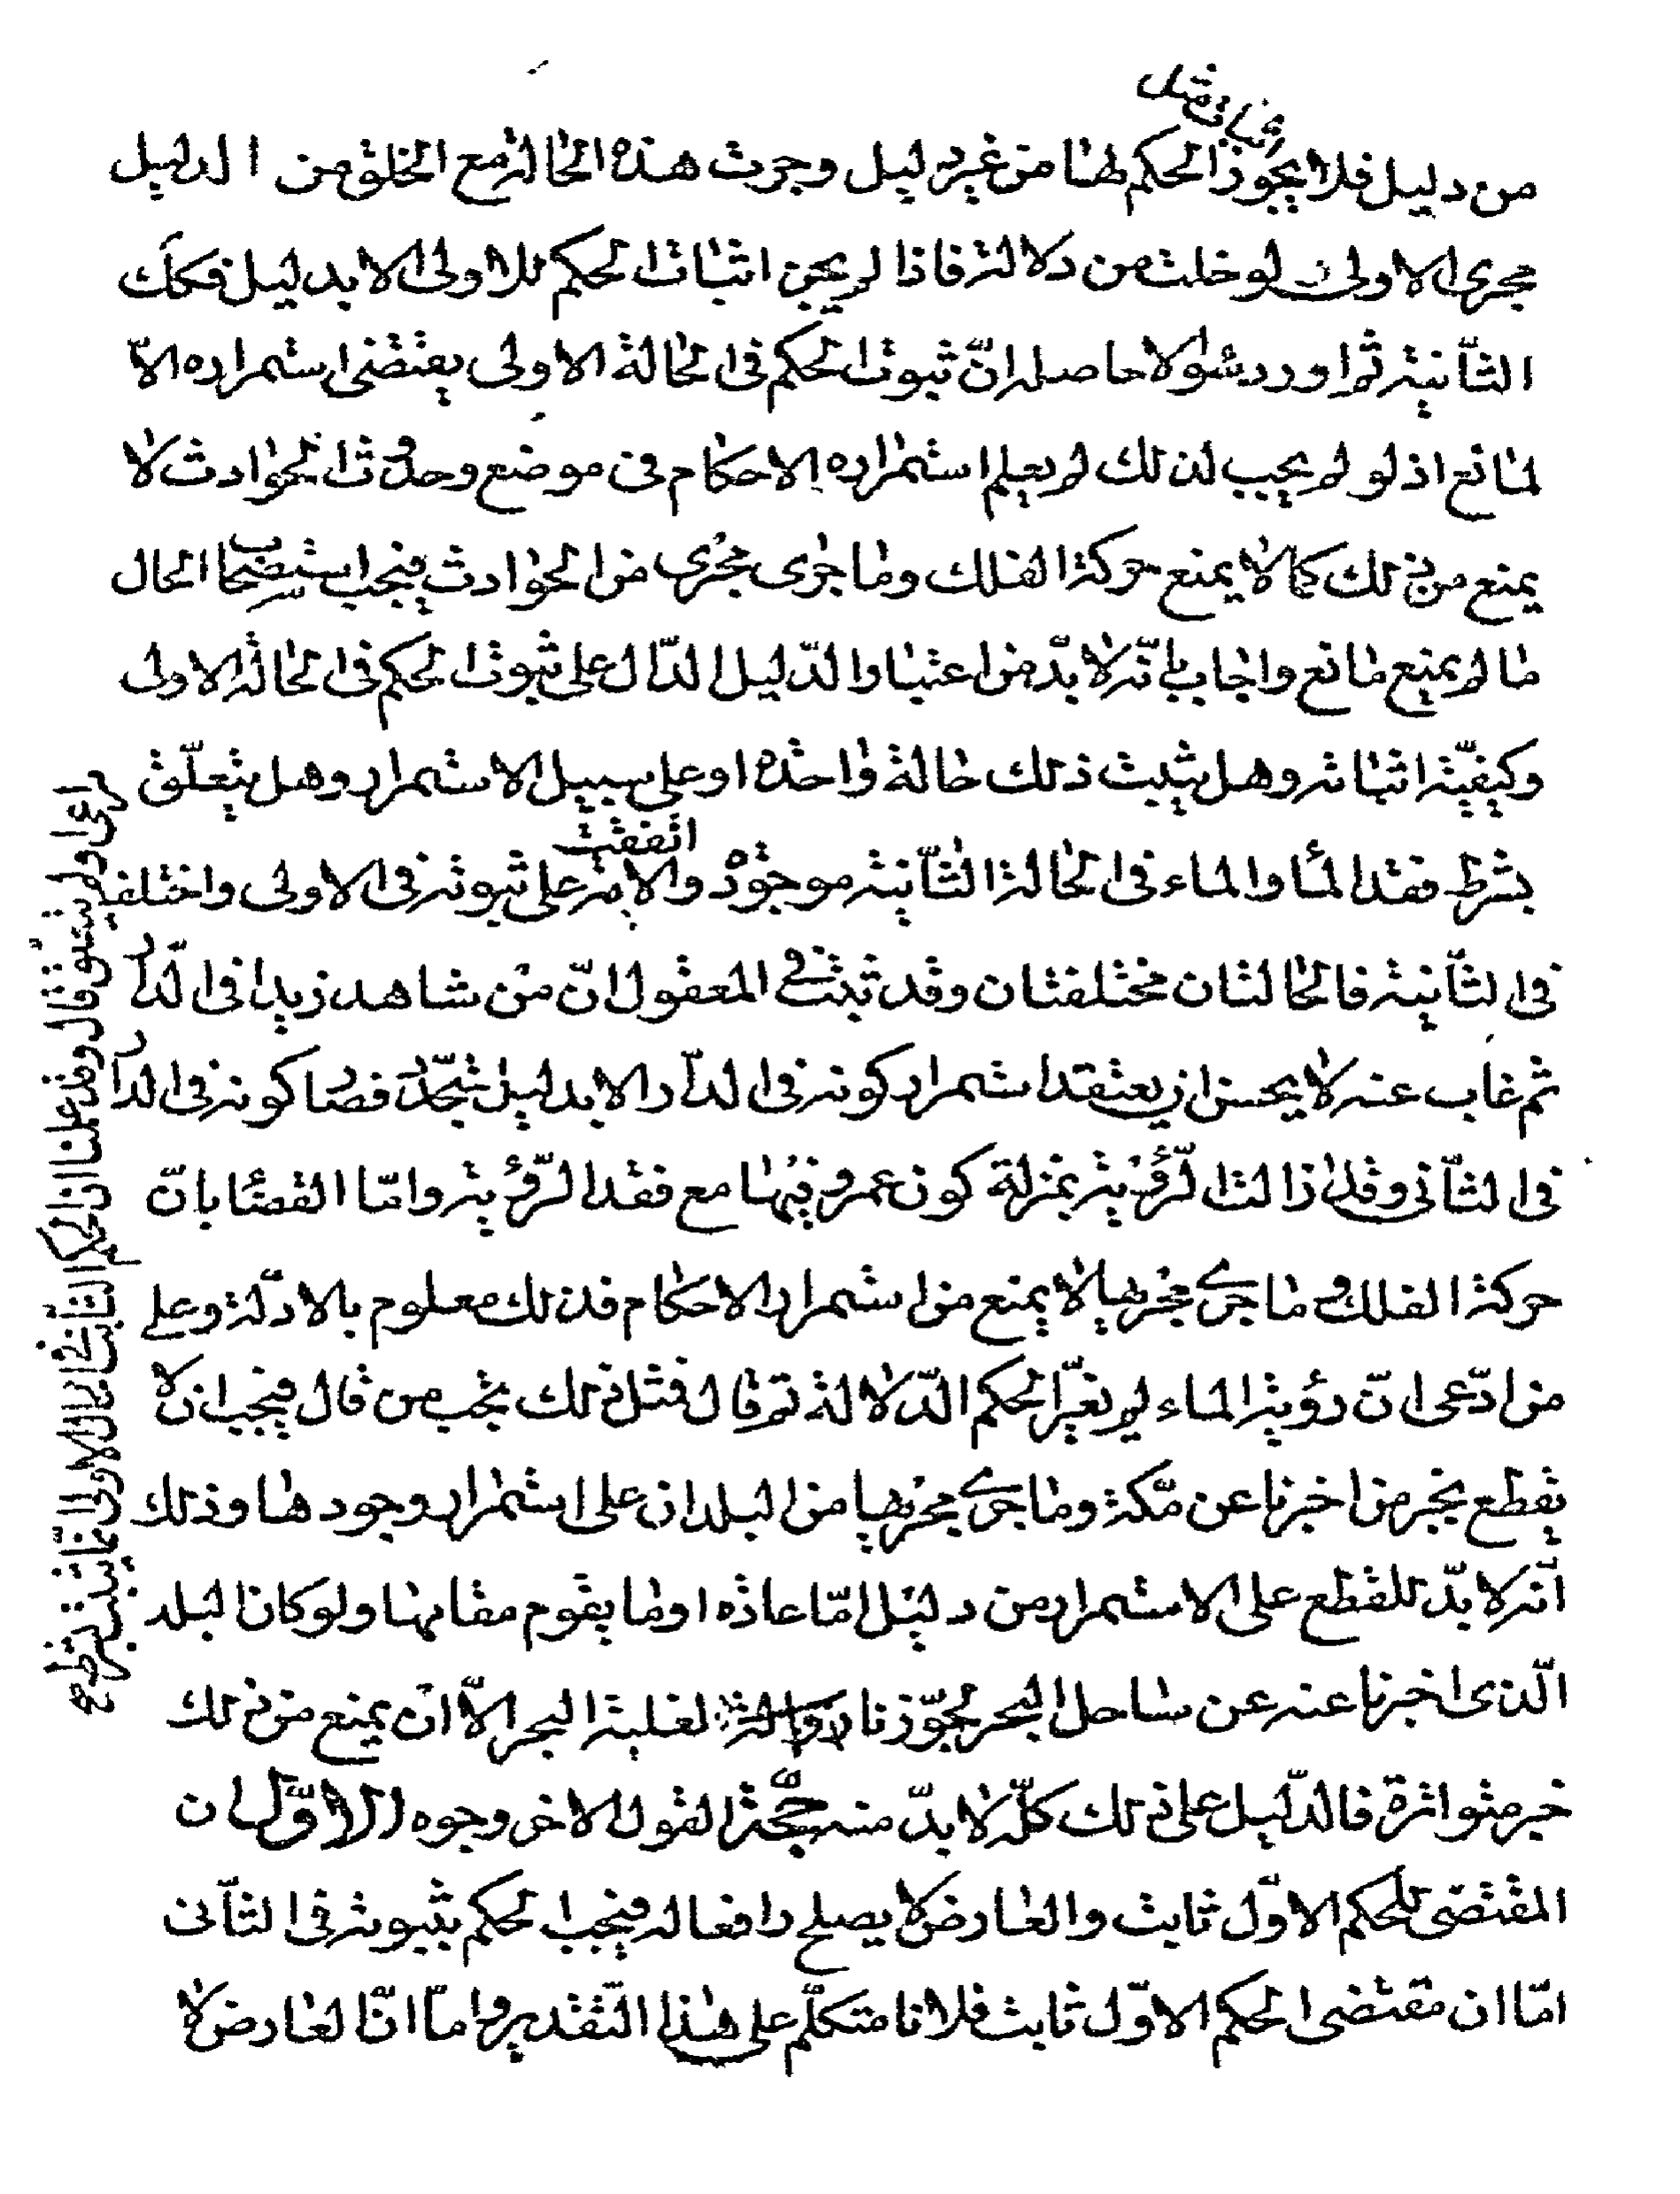 من دليل فلا يجوز الحكم لهنا من غير دليل وجرت هذه الحالة مع الخلو من الدليل
مجرى الاولى لو خلت من دلالة فاذا لم يجز اثبات الحكم للاولى الا بدليل فكك
الثّانية ثم اورد سؤالا حاصله انّ ثبوت الحكم فى الحالة الاولى يقتضى استمراره الاّ
لمانع اذ لو لم يجب لذلك لم يعلم استمراره الاحكام فى موضع وحدوث الحوادث لا
يمنع من ذلك كما لا يمنع حركة الفلك وما جرى مجرى من الحوادث فيجب استصحاب الحال
ما لم يمنع مانع واجاب بانّه لا بدّ من اعتبار الدّليل الدّال على ثبوت الحكم فى الحالة الاولى
وكيفيّة اثباته وهل يثبت ذلك حالة واحده او على سبيل الاستمرار وهل يتعلّق
بشرط فقد الماء والماء فى الحالة الثّانية موجود والامة على ثبوته فى الاولى واختلف
اتفقت
فى الثّانية فالحالتان مختلفتان وقد ثبت فى المعقول انّ من شاهد زيدا فى الدّار
ثم غاب عنه لا يحسن ان يعتقد استمرار كونه فى الدّار الا بدليل متجدّد فصار كونه فى الدار
فى الثّانى وقد زالت الرّؤية بمنزلة كون عمرو فيها مع فقد الرّؤية وامّا القضا بانّ
حركة الفلك وما جرى مجريها لا يمنع من استمرار الاحكام فذلك معلوم بالادلّة وعلى
من ادّعى انّ رؤية الماء لم يغيّر الحكم الدّلالة ثم قال فمثل ذلك يجب من قال فيجب ان لا
يقطع بخبر من اخبرنا عن مكّة وما جرى مجريها من البلدان على استمرار وجودها وذلك
انّه لا بدّ للقطع على الاستمرار من دليل امّا عادة او ما يقوم مقامها ولو كان البلد
الّذى اخبرنا عنه عن ساحل البحر لجوّزنا زواله لغلبة البحر الاّ ان يمنع من ذلك
خبر متواتر فالدّليل على ذلك كلّه لا بدّ منه حجّة القول الاخر وجوه الاوّل ان
المقتضى للحكم الاوّل ثابت والعارض لا يصلح رافعا له فيجب الحكم بثبوته فى الثّانى
امّا ان مقتضى الحكم الاوّل ثابت فلانا متكلّم على هذا التّقدير وامّا انّ العارض لا
وقد علمنا ان الحكم الثابت فى الحال الاولى انما يثبت بشرط